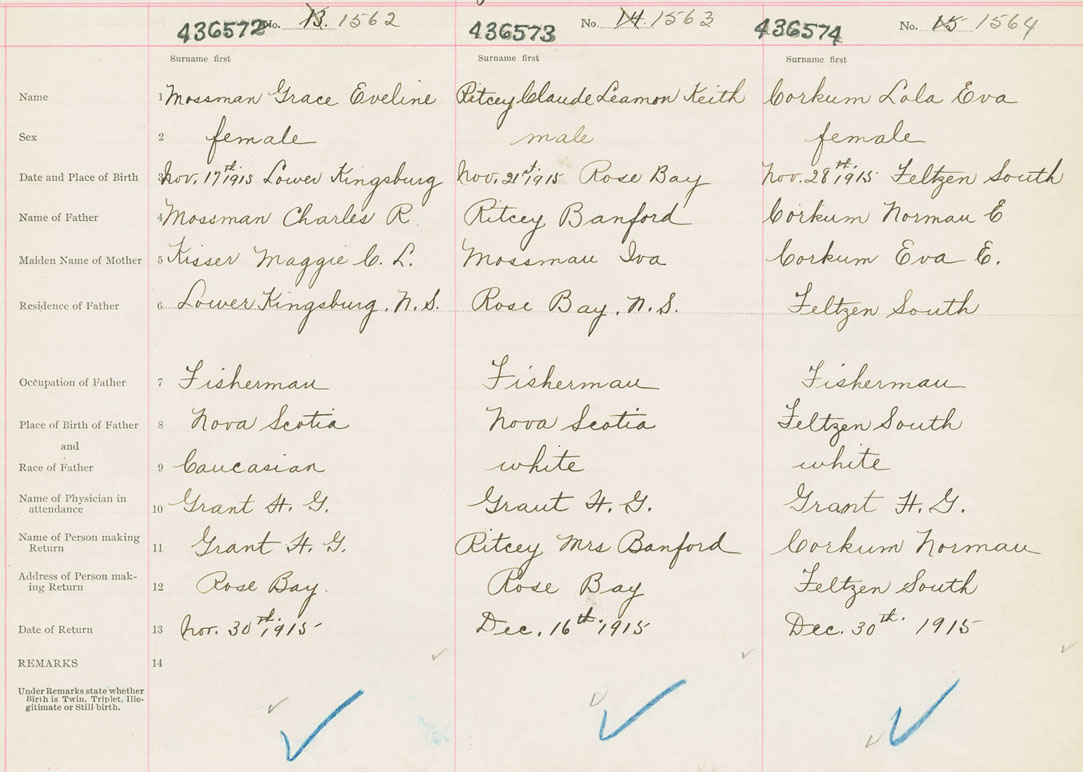 436572 No. 13. 1562 436573 No. 14. 1563 436574 No. 15 1564
Surname first Surname first Surname first
Name 1 Mossman Grace Eveline Ritcey Claude Leamon Keith Corkum Lola Eva
Sex 2 female male female
Date and Place of Birth 3 Nov. 17th 1915 Lower Kingsburg Nov. 21st 1915 Rose Bay Nov. 28th 1915 Feltzen South
Name of Father 4 Mossman Charles R. Ritcey Banford Corkum Norman E
Maiden Name of Mother 5 Kisser Maggie C. L. Mossman Iva Corkum Eva E.
Residence of Father 6 Lower Kingsburg, N.S. Rose Bay, N.S. Feltzen South
Occupation of Father 7 Fisherman Fisherman Fisherman
Place of Birth of Father 8 Nova Scotia Nova Scotia Feltzen South
and
Race of Father 9 Caucasian white white
Name of Physician in
attendance 10 Grant H. G. Grant H. G. Grant H. G.
Name of Person making
Return 11 Grant H. G. Ritcey Mrs Banford Corkum Norman
Address of Person mak-
ing Return 12 Rose Bay. Rose Bay Feltzen South
Date of Return 13 Nov. 30th 1915 Dec. 16th 1915 Dec. 30th 1915
REMARKS 14
Under Remarks state whether
Birth is Twin, Triplet, Ille-
gitimate or Still birth.